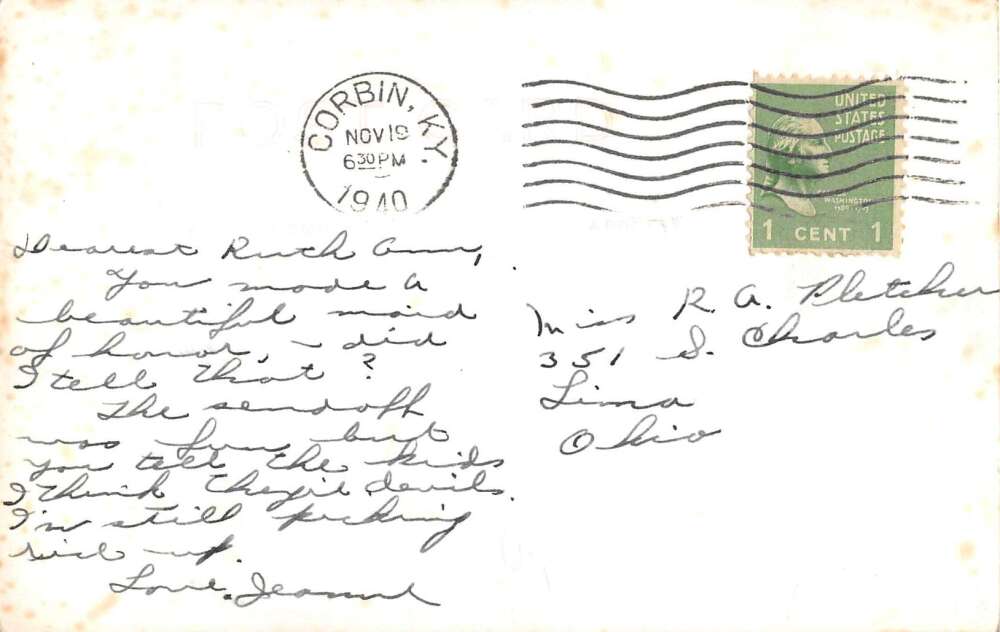 CORBIN, KY.
NOV 19
6 30 PM
1940
UNITED
STATES
POSTAGE
WASHINGTON
1 CENT 1
Dearest Ruth Ann,
You made a
beautiful maid
of honor, - did
I tell that?
The sendoff
was fun but
you tell the kids
I think they're devils.
I'm still picking
rice up.
Love, Jeanne
Miss R. A. Pletcher
351 S. Charles
Lima
Ohio